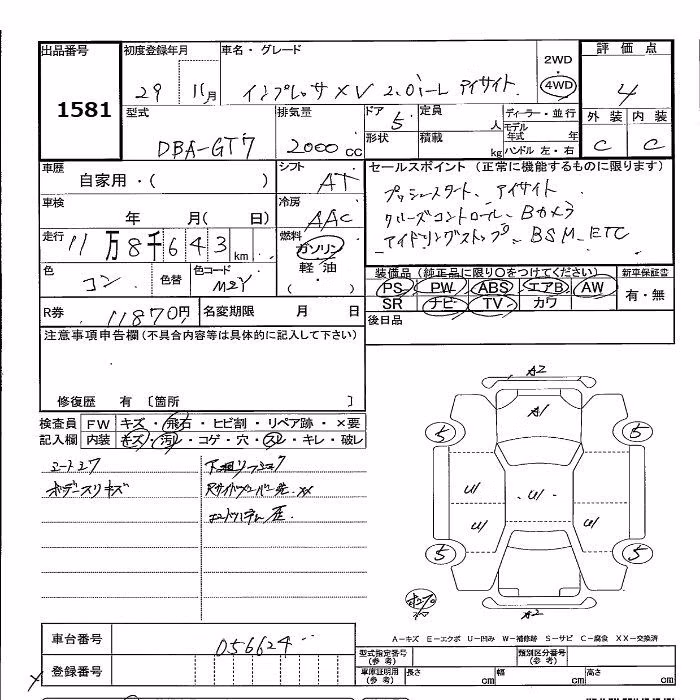 出品番号
1581
初度登録年月
29 11月
車名・グレード
インプレッサXV 2.0i-L アイサイト
2WD
4WD
評価点
4
型式
DBA-GT7
排気量
2000cc
ドア 5
形状
定員 人
積載 kg
ディーラー・並行
モデル年式 年
ハンドル 左・右
外装 C
内装 C
車歴
自家用・( )
シフト AT
セールスポイント (正常に機能するものに限ります)
プッシュスタート、アイサイト
クルーズコントロール、Bカメラ
アイドリングストップ、BSM、ETC
車検
年 月( 日)
冷房 AAC
走行 11万8千643km
燃料
ガソリン
軽油
( )
色
コン
色替
色コード M2Y
装備品(純正品に限り○をつけてください)
PS PW ABS エアB AW
SR ナビ TV カワ
新車保証書
有・無
R券 11870円
名変期限 月 日
後日品
注意事項申告欄(不具合内容等は具体的に記入して下さい)
修復歴 有 〔箇所 〕
検査員記入欄
FW キズ・飛石・ヒビ割・リペア跡・×要
内装 キズ・汚レ・コゲ・穴・スレ・キレ・破レ
ボデースリキズ
A2
A1
5 5
U U U
U U
5 5
A2
A-キズ E-エクボ U-凹み W-補修跡 S-サビ C-腐食 XX-交換済
車台番号 056624
登録番号
型式指定番号(参考)
類別区分番号(参考)
車庫証明用(参考) 長さ cm 幅 cm 高さ cm